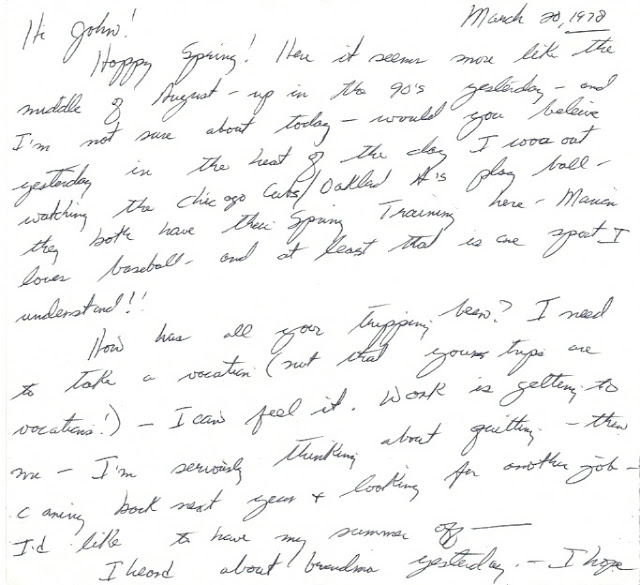 March 20, 1978
Hi John!
Happy Spring! Here it seems more like the
middle of August - up in the 90's yesterday - and
I'm not sure about today - would you beleive
yesterday in the heat of the day I was out
watching the Chicago Cubs/Oakland A's play ball -
they both have their Spring Training here - Marion
loves baseball - and at least that is one sport I
understand!!
How has all your tripping been? I need
to take a vacation (not that your trips are
vacations!) - I can feel it. Work is getting to
me - I'm seriously thinking about quitting - then
coming back next year & looking for another job -
I'd like to have my summer off -
I heard about Grandma yesterday. - I hope